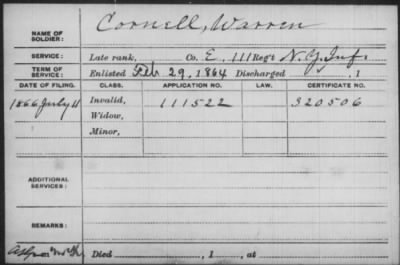 NAME OF SOLDIER: Cornell, Warren
SERVICE: Late rank, Co. E, 111 Reg't N.Y. Inf.
TERM OF SERVICE: Enlisted Feb 29, 1864 Discharged , 1
DATE OF FILING. CLASS. APPLICATION NO. LAW. CERTIFICATE NO.
1866 July 11 Invalid, 111522 320506
Widow,
Minor,
ADDITIONAL SERVICES:
REMARKS:
Died , 1 , at